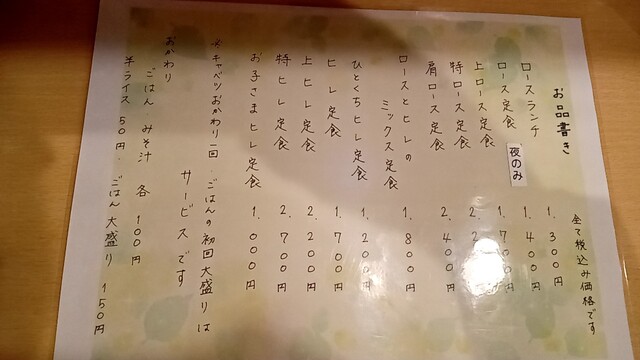 全て税込み価格です
お品書き
ロースランチ 1.300円
ロース定食 夜のみ 1.400円
上ロース定食 1.700円
特ロース定食
肩ロース定食 2.400円
ロースとヒレの
ミックス定食 1.800円
ひとくちヒレ定食 1.200円
ヒレ定食 1.700円
上ヒレ定食 2.200円
特ヒレ定食 2.700円
お子さまヒレ定食 1.000円
※キャベツおかわり一回、ごはんの初回大盛りは
サービスです
おかわり
ごはん みそ汁 各 100円
半ライス 50円. ごはん大盛り 150円